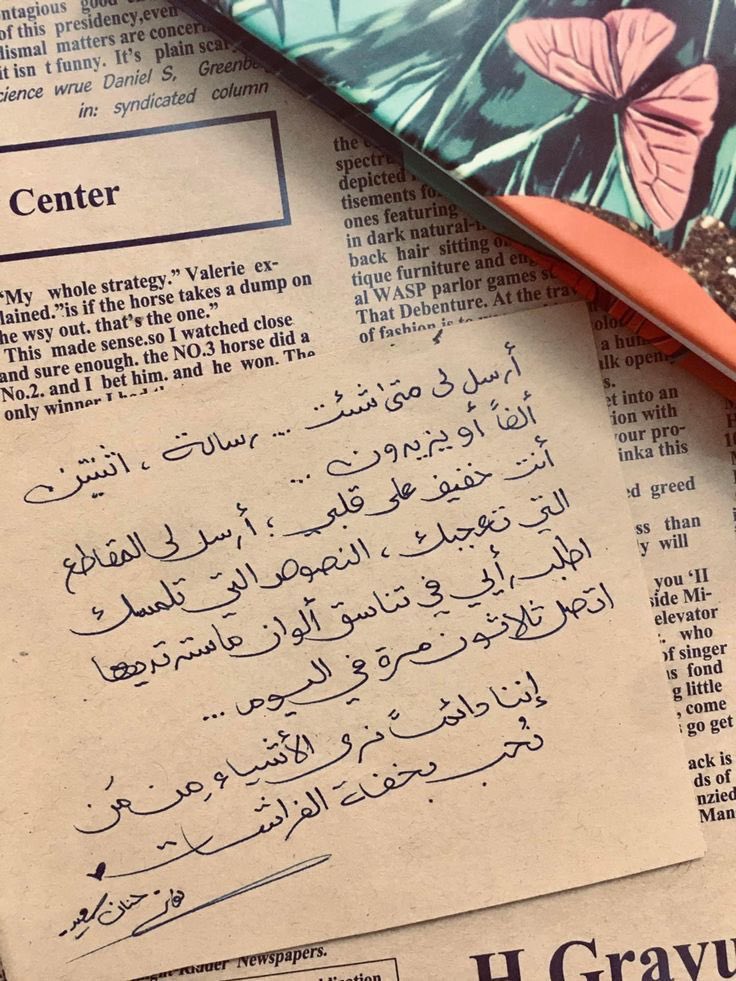 ntagious good
of this presidency,even
dismal matters are concer
it isn t funny. It's plain scar
cience wrue Daniel S, Greenberg
in: syndicated column
Center
"My whole strategy." Valerie ex-
lained."is if the horse takes a dump on
he wsy out. that's the one."
This made sense.so I watched close
and sure enough. the NO.3 horse did a
No.2. and I bet him. and he won. The
only winner I had
the
spectr
depicted
tisements fo
ones featuring
in dark natural-
back hair sitting o
tique furniture and en
al WASP parlor games s
That Debenture. At the tra
of fashion is to
a hu
lk open
s.
et into an
ion with
your pro-
inka this
ed greed
ss than
y will
you 'II
side Mi-
elevator
. who
of singer
is fond
g little
, come
go get
ack is
ds of
nzied
Man
أرسل لي متى شئت ... رسالة ، اثنتين
ألفاً أو يزيدون ...
أنت خفيف على قلبي ؛ أرسل لي المقاطع
التي تعجبك ، النصوص التي تلمسك
اطلب رأيي في تناسق ألوان ما سترتديها
اتصل ثلاثون مرة في اليوم ...
إننا دائماً نرى الأشياء مِن مَن
نُحب بخفة الفراشات
حنان سعيد
Ridder Newspapers.
H Gravu